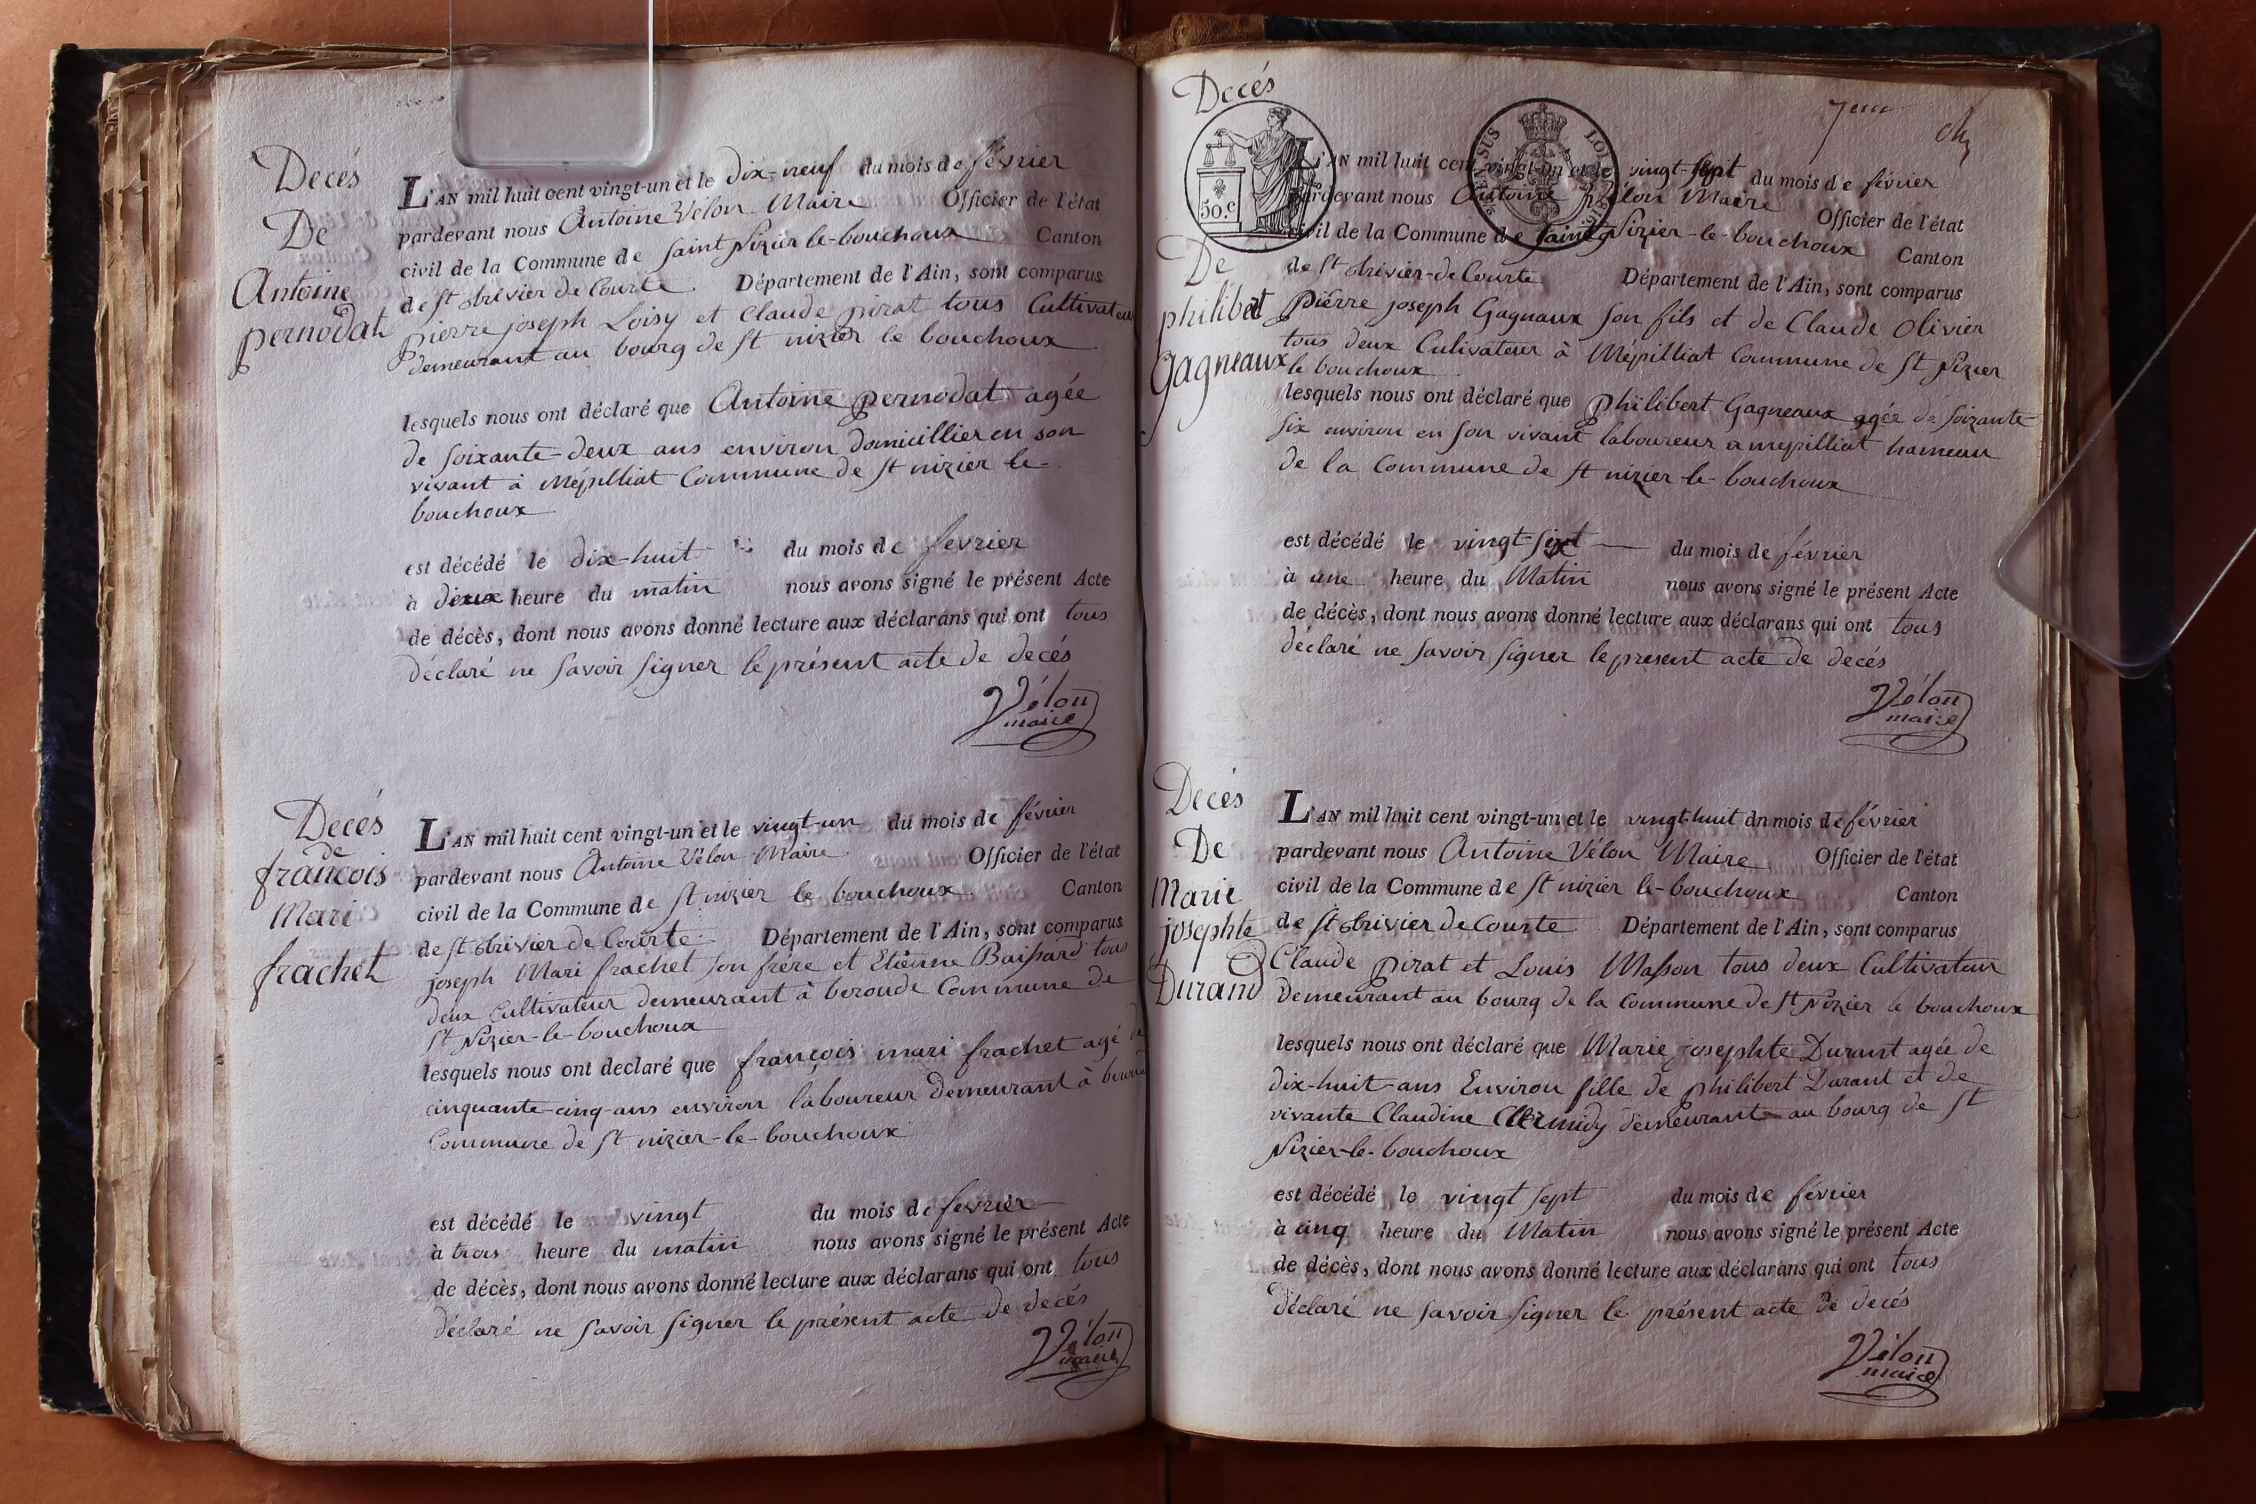 Decés
De
Antoine
pernodat
L'AN mil huit cent vingt-un et le dix-neuf du mois de février
pardevant nous Antoine Vélon Maire Officier de l'état
civil de la Commune de Saint Nizier le-bouchoux Canton
de St trivier de Courte Département de l'Ain, sont comparus
pierre joseph Loisy et Claude pirat tous Cultivateur
demeurant au bourg de St nizier le bouchoux
lesquels nous ont déclaré que Antoine pernodat agée
de soixante-deux ans environ domicillier en son
vivant à Mépilliat Commune de St nizier le-
bouchoux
est décédé le dix-huit du mois de fevrier
à deux heure du matin nous avons signé le présent Acte
de décès, dont nous avons donné lecture aux déclarans qui ont tous
déclaré ne savoir signer le présent acte de decés
Vélon
maire
Decés
de
françois
Mari
frachet
L'AN mil huit cent vingt-un et le vingt-un du mois de févier
pardevant nous Antoine Vélon Maire Officier de l'état
civil de la Commune de St nizier le bouchoux Canton
de St trivier de Courte Département de l'Ain, sont comparus
joseph Mari frachet son frère et Etienne Baissard tous
deux Cultivateur demeurant à beroude Commune de
St Nizier-le-bouchoux
lesquels nous ont declaré que françois mari frachet agé de
cinquante-cinq-ans environ laboureur demeurant à
Commune de St nizier-le-bouchoux
est décédé le vingt du mois de fevrier
à trois heure du matin nous avons signé le présent Acte
de décès, dont nous avons donné lecture aux déclarans qui ont tous
déclaré ne savoir signer le présent acte de decés
Vélon
maire
Decés
50.c
LOI
De
philibert
Gagneaux
L'AN mil huit cent vingt-un et le vingt-sept du mois de février
pardevant nous Antoine Vélon Maire Officier de l'état
civil de la Commune de Saint Nizier-le-bouchoux Canton
de St trivier-de Courte Département de l'Ain, sont comparus
pierre joseph Gagnaux son fils et de Claude Olivier
tous deux Cultivateur à Mépilliat Commune de St Nizier
le bouchoux
lesquels nous ont déclaré que philibert Gagneaux agée de soizante
six environ en son vivant laboureur a mepilliat hameau
de la Commune de St nizier-le-bouchoux
est décédé le vingt-sept du mois de février
à une heure du Matin nous avons signé le présent Acte
de décès, dont nous avons donné lecture aux déclarans qui ont tous
déclaré ne savoir signer le présent acte de decés
Vélon
maire
Decés
De
Marie
josephte
Durand
L'AN mil huit cent vingt-un et le vingt-huit du mois de février
pardevant nous Antoine Vélon Maire Officier de l'état
civil de la Commune de St nizier le-bouchoux Canton
de St trivier de Courte Département de l'Ain, sont comparus
Claude pirat et Louis Masson tous deux Cultivateur
demeurant au bourg de la Commune de St Nizier le bouchoux
lesquels nous ont déclaré que Marie josephte Durant agée de
dix-huit-ans Environ fille de philibert Durant et de
vivante Claudine demeurant au bourg de St
Nizier-le-bouchoux
est décédé le vingt sept du mois de février
à cinq heure du Matin nous avons signé le présent Acte
de décès, dont nous avons donné lecture aux déclarans qui ont tous
déclaré ne savoir signer le présent acte de decés
Vélon
maire